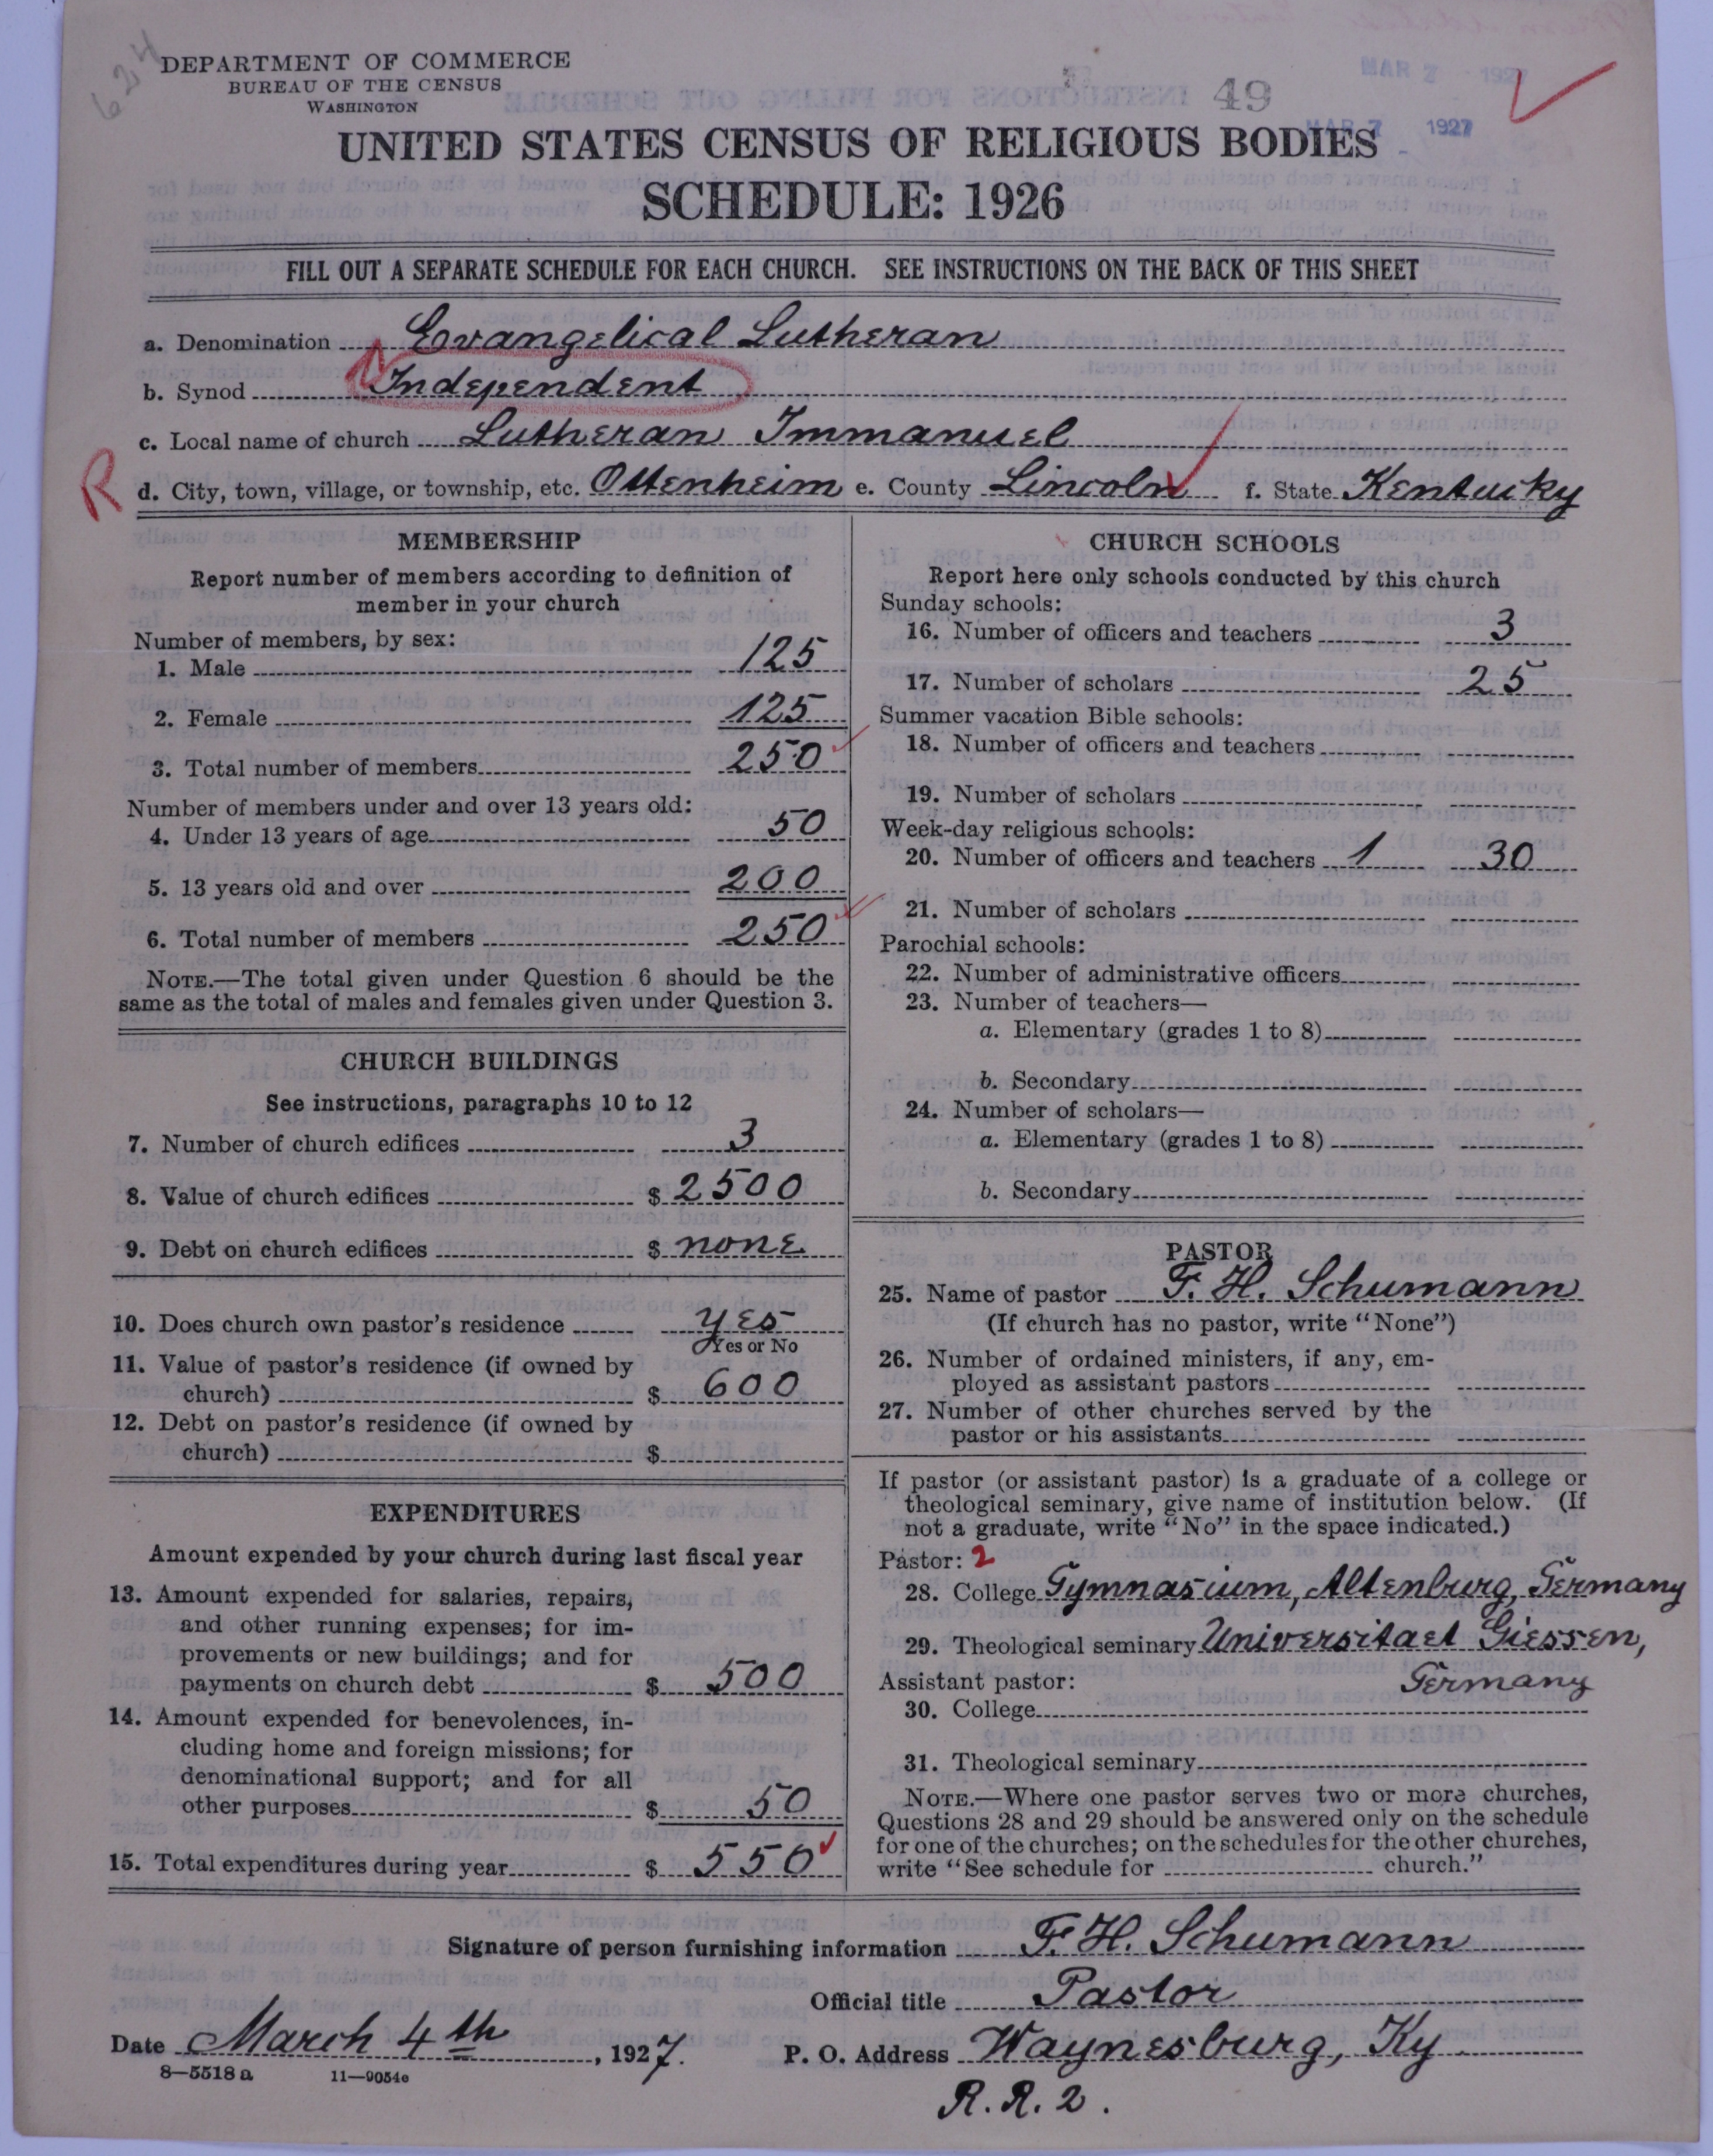 624
DEPARTMENT OF COMMERCE
BUREAU OF THE CENSUS
WASHINGTON
49
MAR 7 1927
MAR 7 1927
UNITED STATES CENSUS OF RELIGIOUS BODIES
SCHEDULE: 1926
FILL OUT A SEPARATE SCHEDULE FOR EACH CHURCH. SEE INSTRUCTIONS ON THE BACK OF THIS SHEET
a. Denomination Evangelical Lutheran
b. Synod Independent
c. Local name of church Lutheran Immanuel
R
d. City, town, village, or township, etc. Ottenheim e. County Lincoln f. State Kentucky
MEMBERSHIP
Report number of members according to definition of
member in your church
Number of members, by sex:
1. Male 125
2. Female 125
3. Total number of members 250
Number of members under and over 13 years old:
4. Under 13 years of age 50
5. 13 years old and over 200
6. Total number of members 250
NOTE.—The total given under Question 6 should be the
same as the total of males and females given under Question 3.
CHURCH BUILDINGS
See instructions, paragraphs 10 to 12
7. Number of church edifices 3
8. Value of church edifices $ 2500
9. Debt on church edifices $ none
10. Does church own pastor's residence yes
Yes or No
11. Value of pastor's residence (if owned by
church) $ 600
12. Debt on pastor's residence (if owned by
church) $
EXPENDITURES
Amount expended by your church during last fiscal year
13. Amount expended for salaries, repairs,
and other running expenses; for im-
provements or new buildings; and for
payments on church debt $ 500
14. Amount expended for benevolences, in-
cluding home and foreign missions; for
denominational support; and for all
other purposes $ 50
15. Total expenditures during year $ 550
CHURCH SCHOOLS
Report here only schools conducted by this church
Sunday schools:
16. Number of officers and teachers 3
17. Number of scholars 25
Summer vacation Bible schools:
18. Number of officers and teachers
19. Number of scholars
Week-day religious schools:
20. Number of officers and teachers 1 30
21. Number of scholars
Parochial schools:
22. Number of administrative officers
23. Number of teachers—
a. Elementary (grades 1 to 8)
b. Secondary
24. Number of scholars—
a. Elementary (grades 1 to 8)
b. Secondary
PASTOR
25. Name of pastor F. H. Schumann
(If church has no pastor, write "None")
26. Number of ordained ministers, if any, em-
ployed as assistant pastors
27. Number of other churches served by the
pastor or his assistants
If pastor (or assistant pastor) is a graduate of a college or
theological seminary, give name of institution below. (If
not a graduate, write "No" in the space indicated.)
Pastor: 2
28. College Gymnasium, Altenburg, Germany
29. Theological seminary Universitaet Giessen,
Germany
Assistant pastor:
30. College
31. Theological seminary
NOTE.—Where one pastor serves two or more churches,
Questions 28 and 29 should be answered only on the schedule
for one of the churches; on the schedules for the other churches,
write "See schedule for church."
Signature of person furnishing information F. H. Schumann
Official title Pastor
Date March 4th, 1927.
P. O. Address Waynesburg, Ky
R. R. 2.
8—5518 a 11—9054e